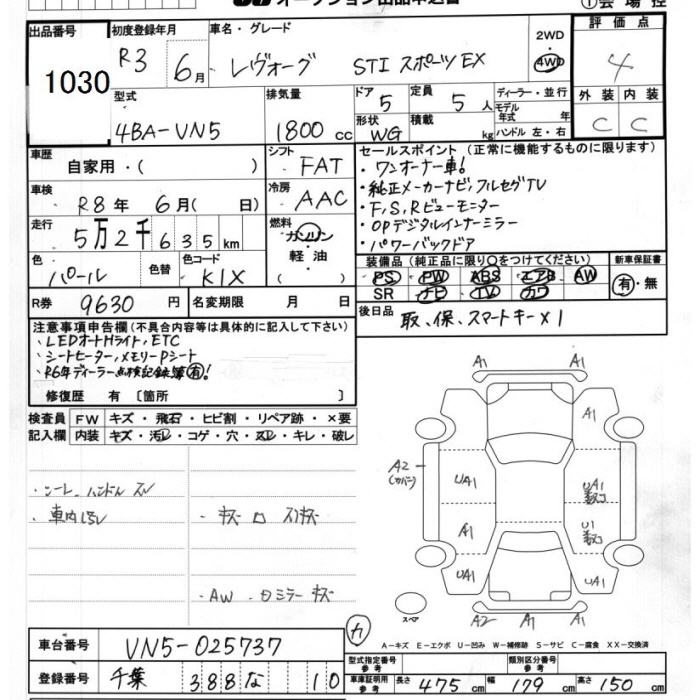 オークション出品申込書
①会場控
出品番号
1030
初度登録年月
R3 6月
車名・グレード
レヴォーグ STI スポーツ EX
2WD
4WD
評価点
4
型式
4BA-VN5
排気量
1800 cc
ドア 5
定員 5人
形状 WG
積載 kg
ディーラー・並行
モデル年式 年
ハンドル 左・右
外装 内装
C C
車歴
自家用・( )
シフト
FAT
車検
R8年 6月( 日)
冷房
AAC
走行
5万2千635km
燃料
ガソリン
軽油
( )
色
パール
色替
色コード
K1X
R券 9630円
名変期限 月 日
セールスポイント(正常に機能するものに限ります)
・ワンオーナー車!
・純正メーカーナビ,フルセグTV
・F,S,Rビューモニター
・OPデジタルインナーミラー
・パワーバックドア
装備品(純正品に限り○をつけてください)
PS PW ABS エアB AW
SR ナビ TV カワ
新車保証書
有・無
後日品
取、保、スマートキー×1
注意事項申告欄(不具合内容等は具体的に記入して下さい)
・LEDオートHライト,ETC
・シートヒーター,メモリーPシート
・R6年ディーラー点検記録簿有!
修復歴 有 〔箇所
検査員記入欄
FW キズ・飛石・ヒビ割・リペア跡・×要
内装 キズ・汚レ・コゲ・穴・スレ・キレ・破レ
・シート ハンドル スレ
・キズ ロ スリキズ
・AW ・ロミラー キズ
A1
A1
A1
A2
(カバー)
UA1
UA1
A1
U1
UA1
UA1
A2
A1
A1
スペア
カ
A-キズ E-エクボ U-凹み W-補修跡 S-サビ C-腐食 XX-交換済
車台番号
VN5-025737
登録番号
千葉 388 な 10
型式指定番号
参考
類別区分番号
参考
車庫証明用
参考
長さ 475cm
幅 179cm
高さ 150cm